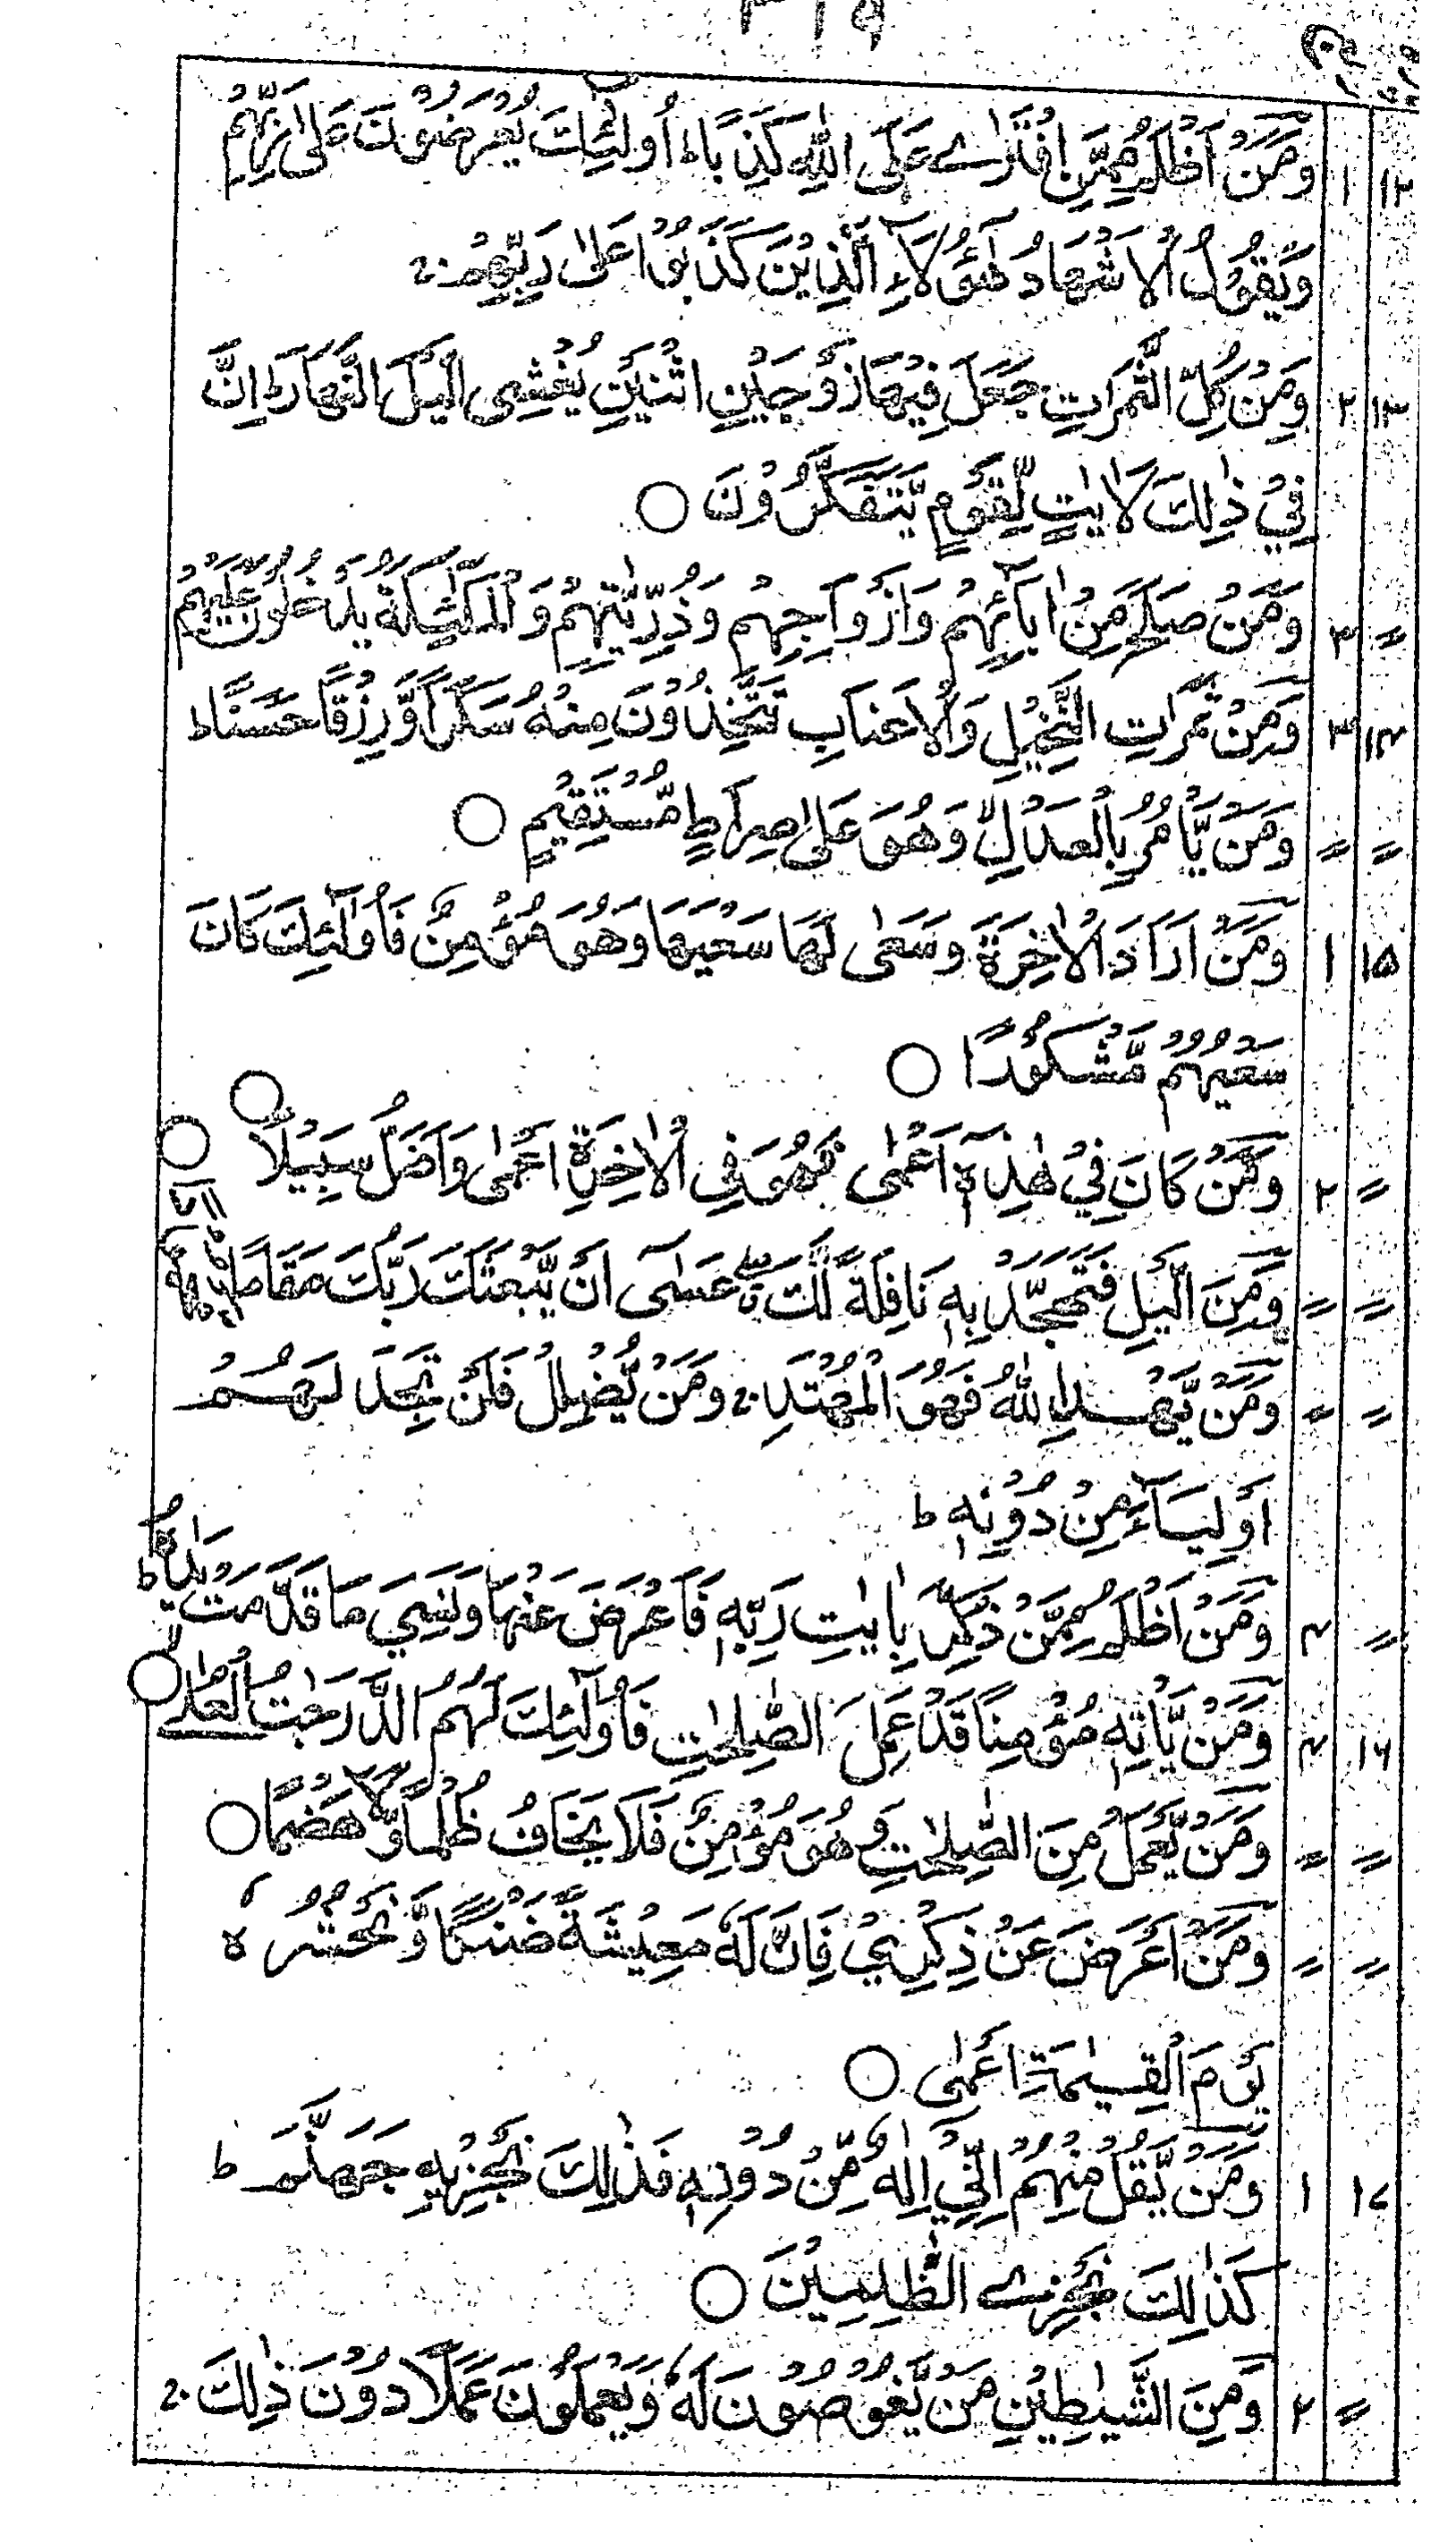 ۱۲ ۱ وَمَنْ اَظْلَمُ مِمَّنِ افْتَرٰے عَلَی اللّٰهِ كَذِبًا ط اُولٰٓئِكَ يُعْرَضُوْنَ عَلٰی رَبِّهِمْ
وَيَقُوْلُ الْاَشْهَادُ هٰٓؤُلَآءِ الَّذِيْنَ كَذَبُوْا عَلٰی رَبِّهِمْ ج
۱۳ ۲ وَمِنْ كُلِّ الثَّمَرٰتِ جَعَلَ فِيْهَا زَوْجَيْنِ اثْنَيْنِ يُغْشِی الَّيْلَ النَّهَارَ ط اِنَّ
فِيْ ذٰلِكَ لَاٰيٰتٍ لِّقَوْمٍ يَّتَفَكَّرُوْنَ ○
〃 ۳ وَمَنْ صَلَحَ مِنْ اٰبَآئِهِمْ وَاَزْوَاجِهِمْ وَذُرِّيّٰتِهِمْ وَالْمَلٰٓئِكَةُ يَدْخُلُوْنَ عَلَيْهِمْ
۱۴ ۳ وَمِنْ ثَمَرٰتِ النَّخِيْلِ وَالْاَعْنَابِ تَتَّخِذُوْنَ مِنْهُ سَكَرًا وَّرِزْقًا حَسَنًا ط
〃 〃 وَمَنْ يَّاْمُرُ بِالْعَدْلِ لا وَهُوَ عَلٰی صِرَاطٍ مُّسْتَقِيْمٍ ○
۱۵ ۱ وَمَنْ اَرَادَ الْاٰخِرَةَ وَسَعٰی لَهَا سَعْيَهَا وَهُوَ مُؤْمِنٌ فَاُولٰٓئِكَ كَانَ
سَعْيُهُمْ مَّشْكُوْرًا ○
〃 ۲ وَمَنْ كَانَ فِيْ هٰذِهٖٓ اَعْمٰی فَهُوَ فِی الْاٰخِرَةِ اَعْمٰی وَاَضَلُّ سَبِيْلًا ○
〃 〃 وَمِنَ الَّيْلِ فَتَهَجَّدْ بِهٖ نَافِلَةً لَّكَ عَسٰٓی اَنْ يَّبْعَثَكَ رَبُّكَ مَقَامًا ○
〃 〃 وَمَنْ يَّهْدِ اللّٰهُ فَهُوَ الْمُهْتَدِ ج وَمَنْ يُّضْلِلْ فَلَنْ تَجِدَ لَهُمْ
اَوْلِيَآءَ مِنْ دُوْنِهٖ ط
〃 ۴ وَمَنْ اَظْلَمُ مِمَّنْ ذُكِّرَ بِاٰيٰتِ رَبِّهٖ فَاَعْرَضَ عَنْهَا وَنَسِيَ مَا قَدَّمَتْ يَدٰهُ ط
۱۶ ۴ وَمَنْ يَّاْتِهٖ مُؤْمِنًا قَدْ عَمِلَ الصّٰلِحٰتِ فَاُولٰٓئِكَ لَهُمُ الدَّرَجٰتُ الْعُلٰے ○
〃 〃 وَمَنْ يَّعْمَلْ مِنَ الصّٰلِحٰتِ وَهُوَ مُؤْمِنٌ فَلَا يَخَافُ ظُلْمًا وَّلَا هَضْمًا ○
〃 〃 وَمَنْ اَعْرَضَ عَنْ ذِكْرِيْ فَاِنَّ لَهٗ مَعِيْشَةً ضَنْكًا وَّنَحْشُرُهٗ
يَوْمَ الْقِيٰمَةِ اَعْمٰی ○
۱۷ ۱ وَمَنْ يَّقُلْ مِنْهُمْ اِنِّيْٓ اِلٰهٌ مِّنْ دُوْنِهٖ فَذٰلِكَ نَجْزِيْهِ جَهَنَّمَ ط
كَذٰلِكَ نَجْزِے الظّٰلِمِيْنَ ○
〃 ۲ وَمِنَ الشَّيٰطِيْنِ مَنْ يَّغُوْصُوْنَ لَهٗ وَيَعْمَلُوْنَ عَمَلًا دُوْنَ ذٰلِكَ ج